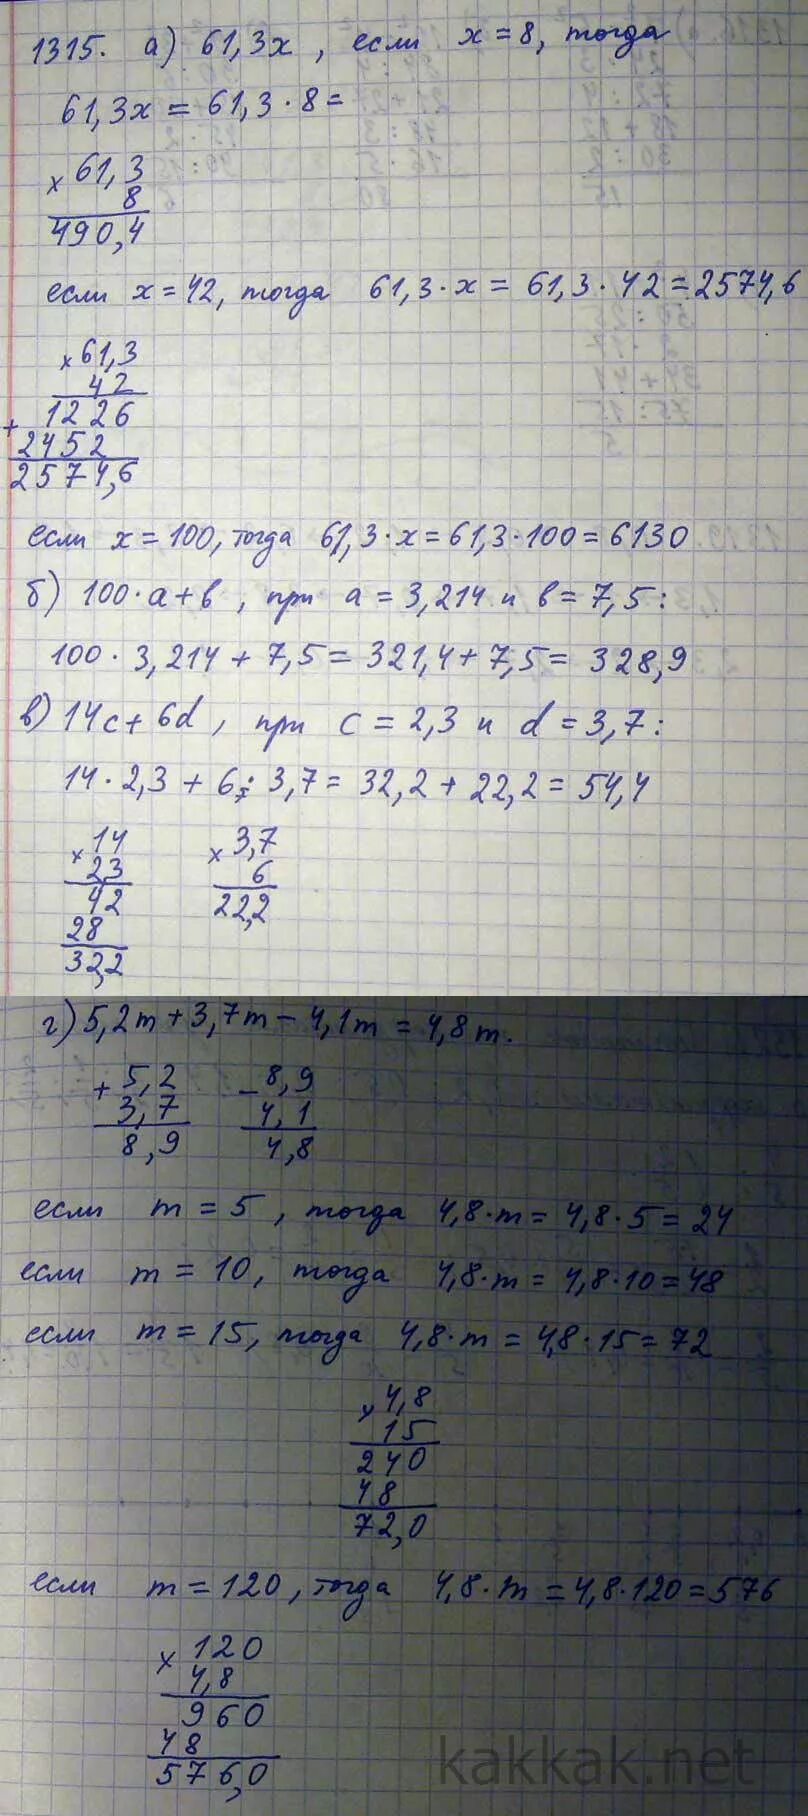 1315. а) 61,3x , если x = 8, тогда
61,3x = 61,3 · 8 =
× 61,3
8
490,4
если x = 42, тогда 61,3 · x = 61,3 · 42 = 2574,6
× 61,3
42
+ 1226
2452
2574,6
если x = 100, тогда 61,3 · x = 61,3 · 100 = 6130
б) 100 · a + b , при a = 3,214 и b = 7,5 :
100 · 3,214 + 7,5 = 321,4 + 7,5 = 328,9
в) 14c + 6d , при c = 2,3 и d = 3,7 :
14 · 2,3 + 6 · 3,7 = 32,2 + 22,2 = 54,4
× 14
23
42
28
32,2
× 3,7
6
22,2
г) 5,2m + 3,7m − 4,1m = 4,8m.
+ 5,2
3,7
8,9
− 8,9
4,1
4,8
если m = 5 , тогда 4,8 · m = 4,8 · 5 = 24
если m = 10, тогда 4,8 · m = 4,8 · 10 = 48
если m = 15, тогда 4,8 · m = 4,8 · 15 = 72
× 4,8
15
240
48
72,0
если m = 120 , тогда 4,8 · m = 4,8 · 120 = 576
× 120
4,8
960
48
576,0
kakkak.net